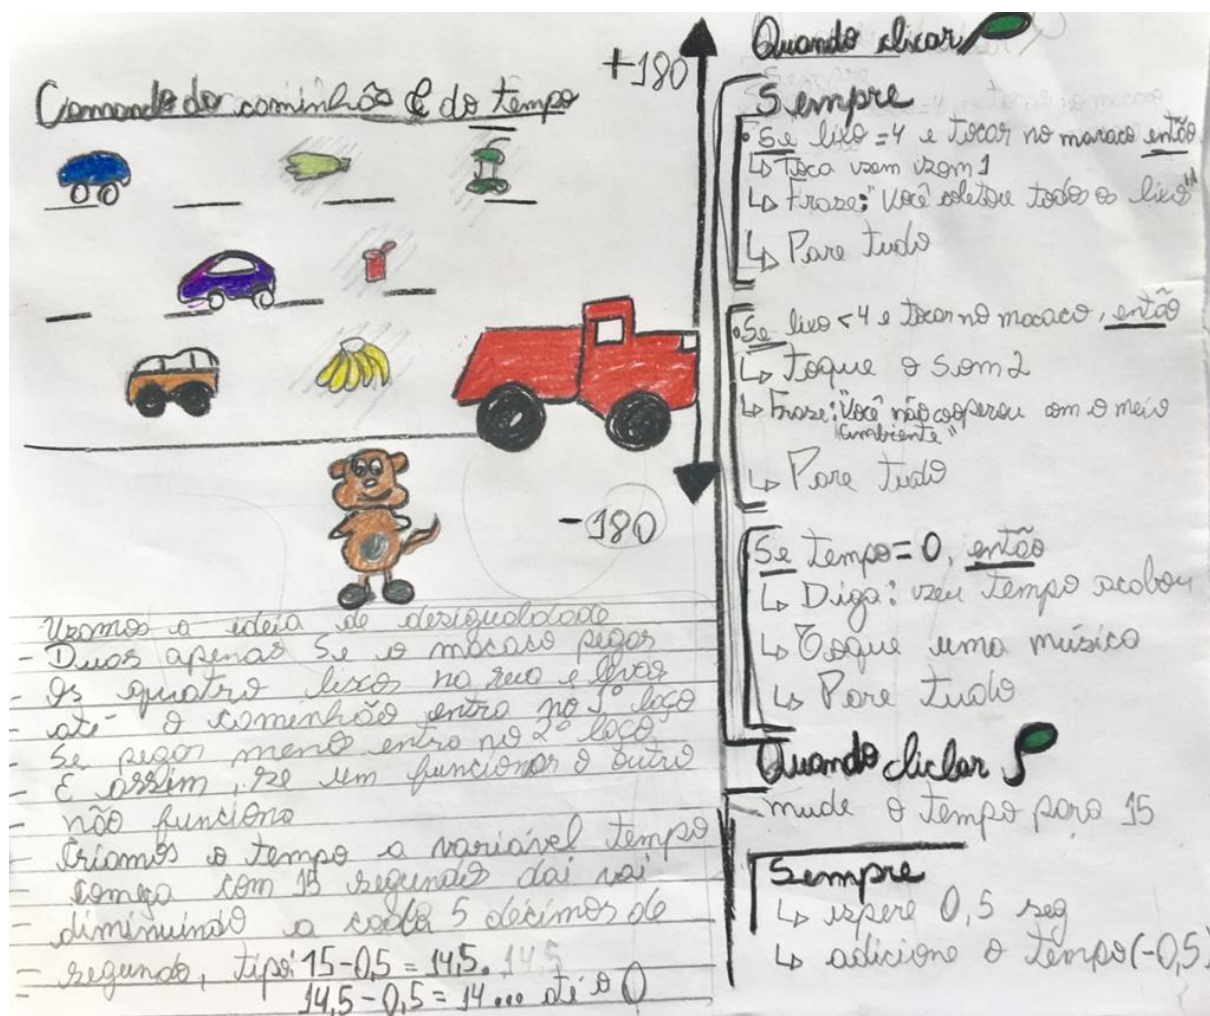 Comando do caminhão e do tempo
+180
-180
Usamos a ideia de desigualdade
- Duas apenas se o macaco pegar
- Os quatro lixos na rua e levar
- até o caminhão entra no 1º laço
- Se pegar meno entra no 2º laço
- E assim, se um funcionar o outro
- não funciona
- Criamos o tempo a variável tempo
- começa com 15 segundos daí vai
- diminuindo a cada 5 décimos de
- segundo, tipo: 15-0,5 = 14,5. 14,5
- 14,5-0,5 = 14... até o 0
Quando clicar
Sempre
Se lixo = 4 e tocar no macaco então
↳ Toca som 1
↳ Frase: "Você coletou todos os lixo"
↳ Pare tudo
Se lixo < 4 e tocar no macaco, então
↳ Toque o som 2
↳ Frase: "Você não cooperou com o meio
ambiente"
↳ Pare tudo
Se tempo = 0, então
↳ Diga: seu tempo acabou
↳ Toque uma música
↳ Pare tudo
Quando cliclar
mude o tempo para 15
Sempre
↳ espere 0,5 seg
↳ adicione o tempo (-0,5)